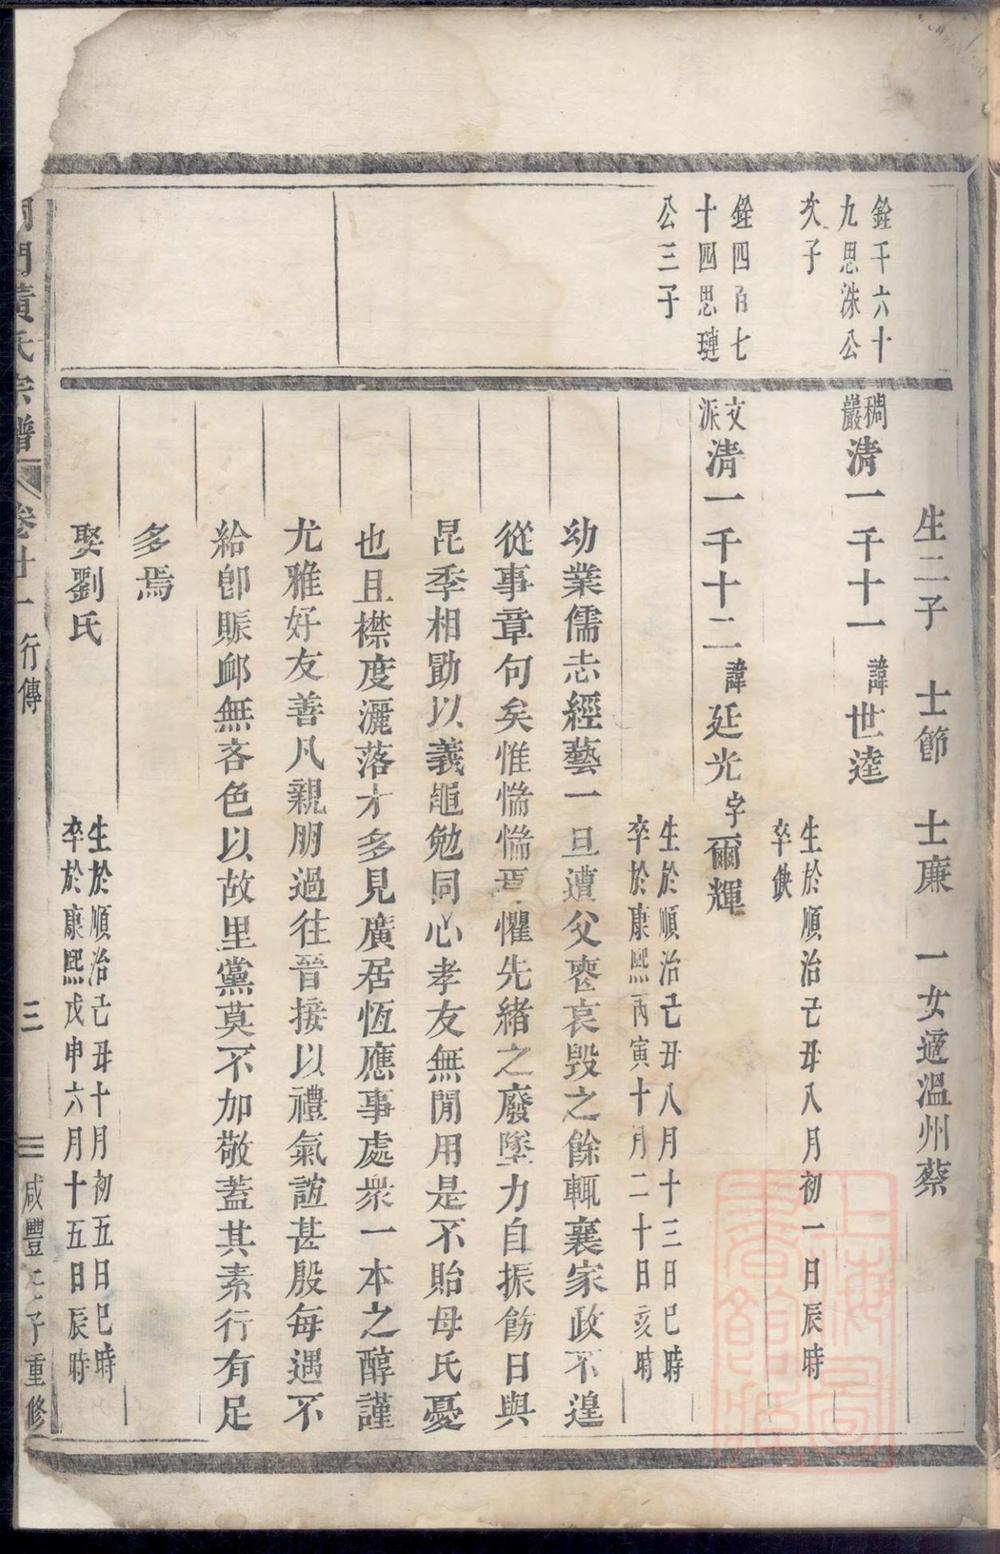 生二子　士節　士廉　一女適溫州蔡
銓千六十
九思洙公
次子
稠巖清一千十一諱世逵
生於順治己丑八月初一日辰時
卒佚
銓四百七
十四思璉
公三子
文派清一千十二諱廷光字爾輝
生於順治己丑八月十三日巳時
卒於康熙丙寅十月二十日亥時
幼業儒志經藝一旦遭父喪哀毀之餘輒襄家政不遑
從事章句矣惟惴惴焉懼先緒之廢墜力自振飭日與
昆季相勖以義黽勉同心孝友無閒用是不貽母氏憂
也且襟度灑落才多見廣居恆應事處衆一本之醇謹
尤雅好友善凡親朋過往晉接以禮氣誼甚殷每遇不
給卽賑卹無吝色以故里黨莫不加敬蓋其素行有足
多焉
娶劉氏
生於順治己丑十月初五日巳時
卒於康熙戊申六月十五日辰時
門黃氏宗譜　卷廿一　行傳　三　咸豐壬子重修
上海圖書館藏